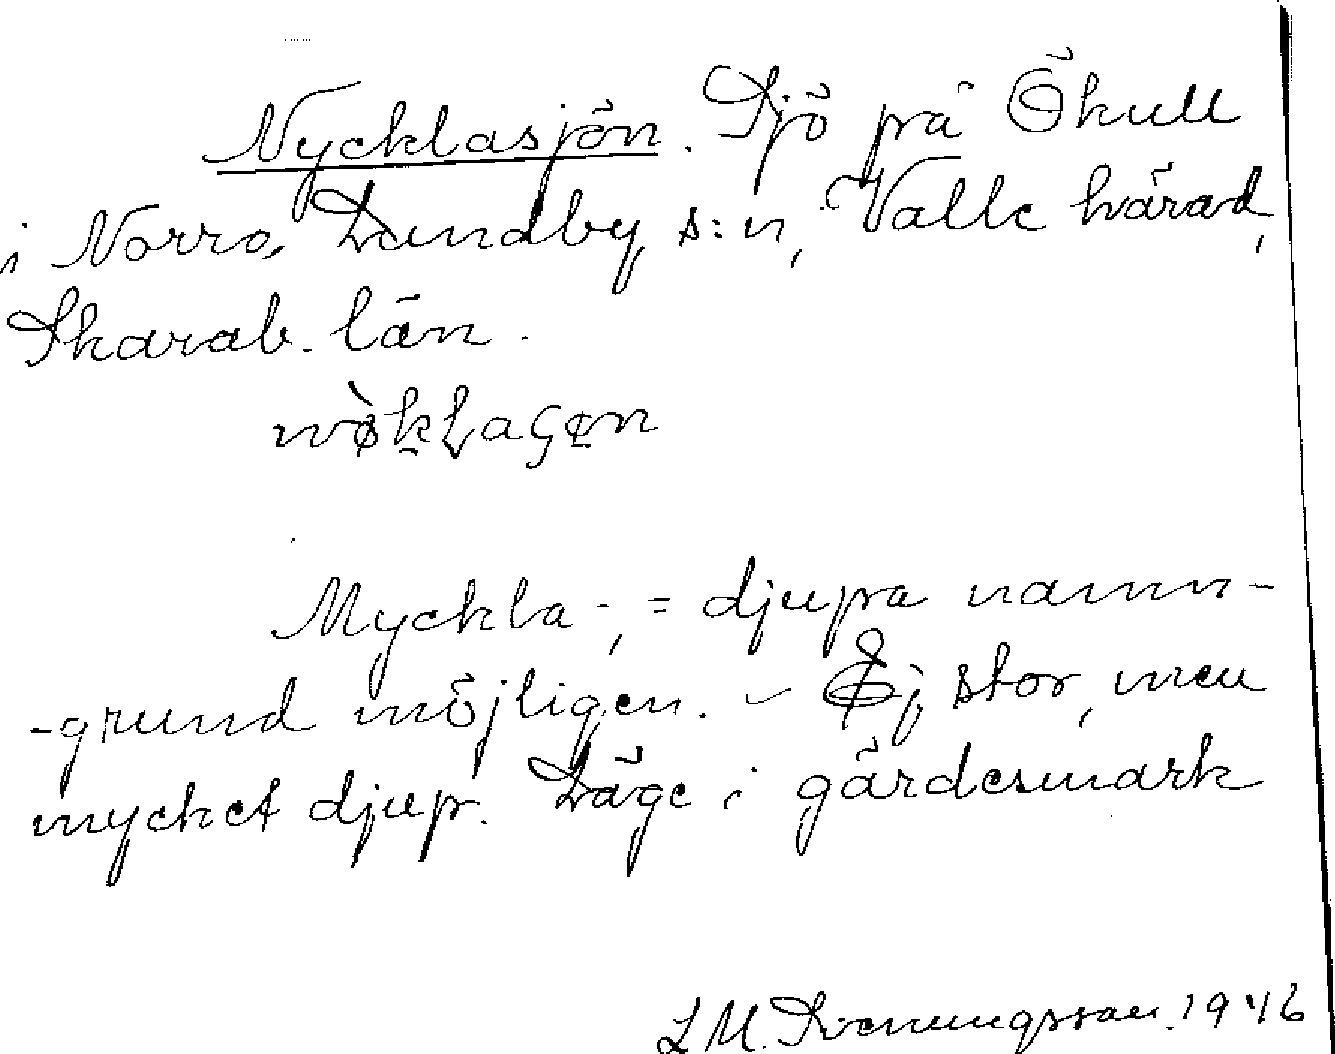 Nycklasjön. Sjö på Ökull
i Norra Lundby s:n, Valle härad,
Skarab. län.
Myckla-, = djupa namn-
-grund möjligen. - Ej stor, men
mycket djup. Läge i gärdesmark
L M. Svenungsson. 1946